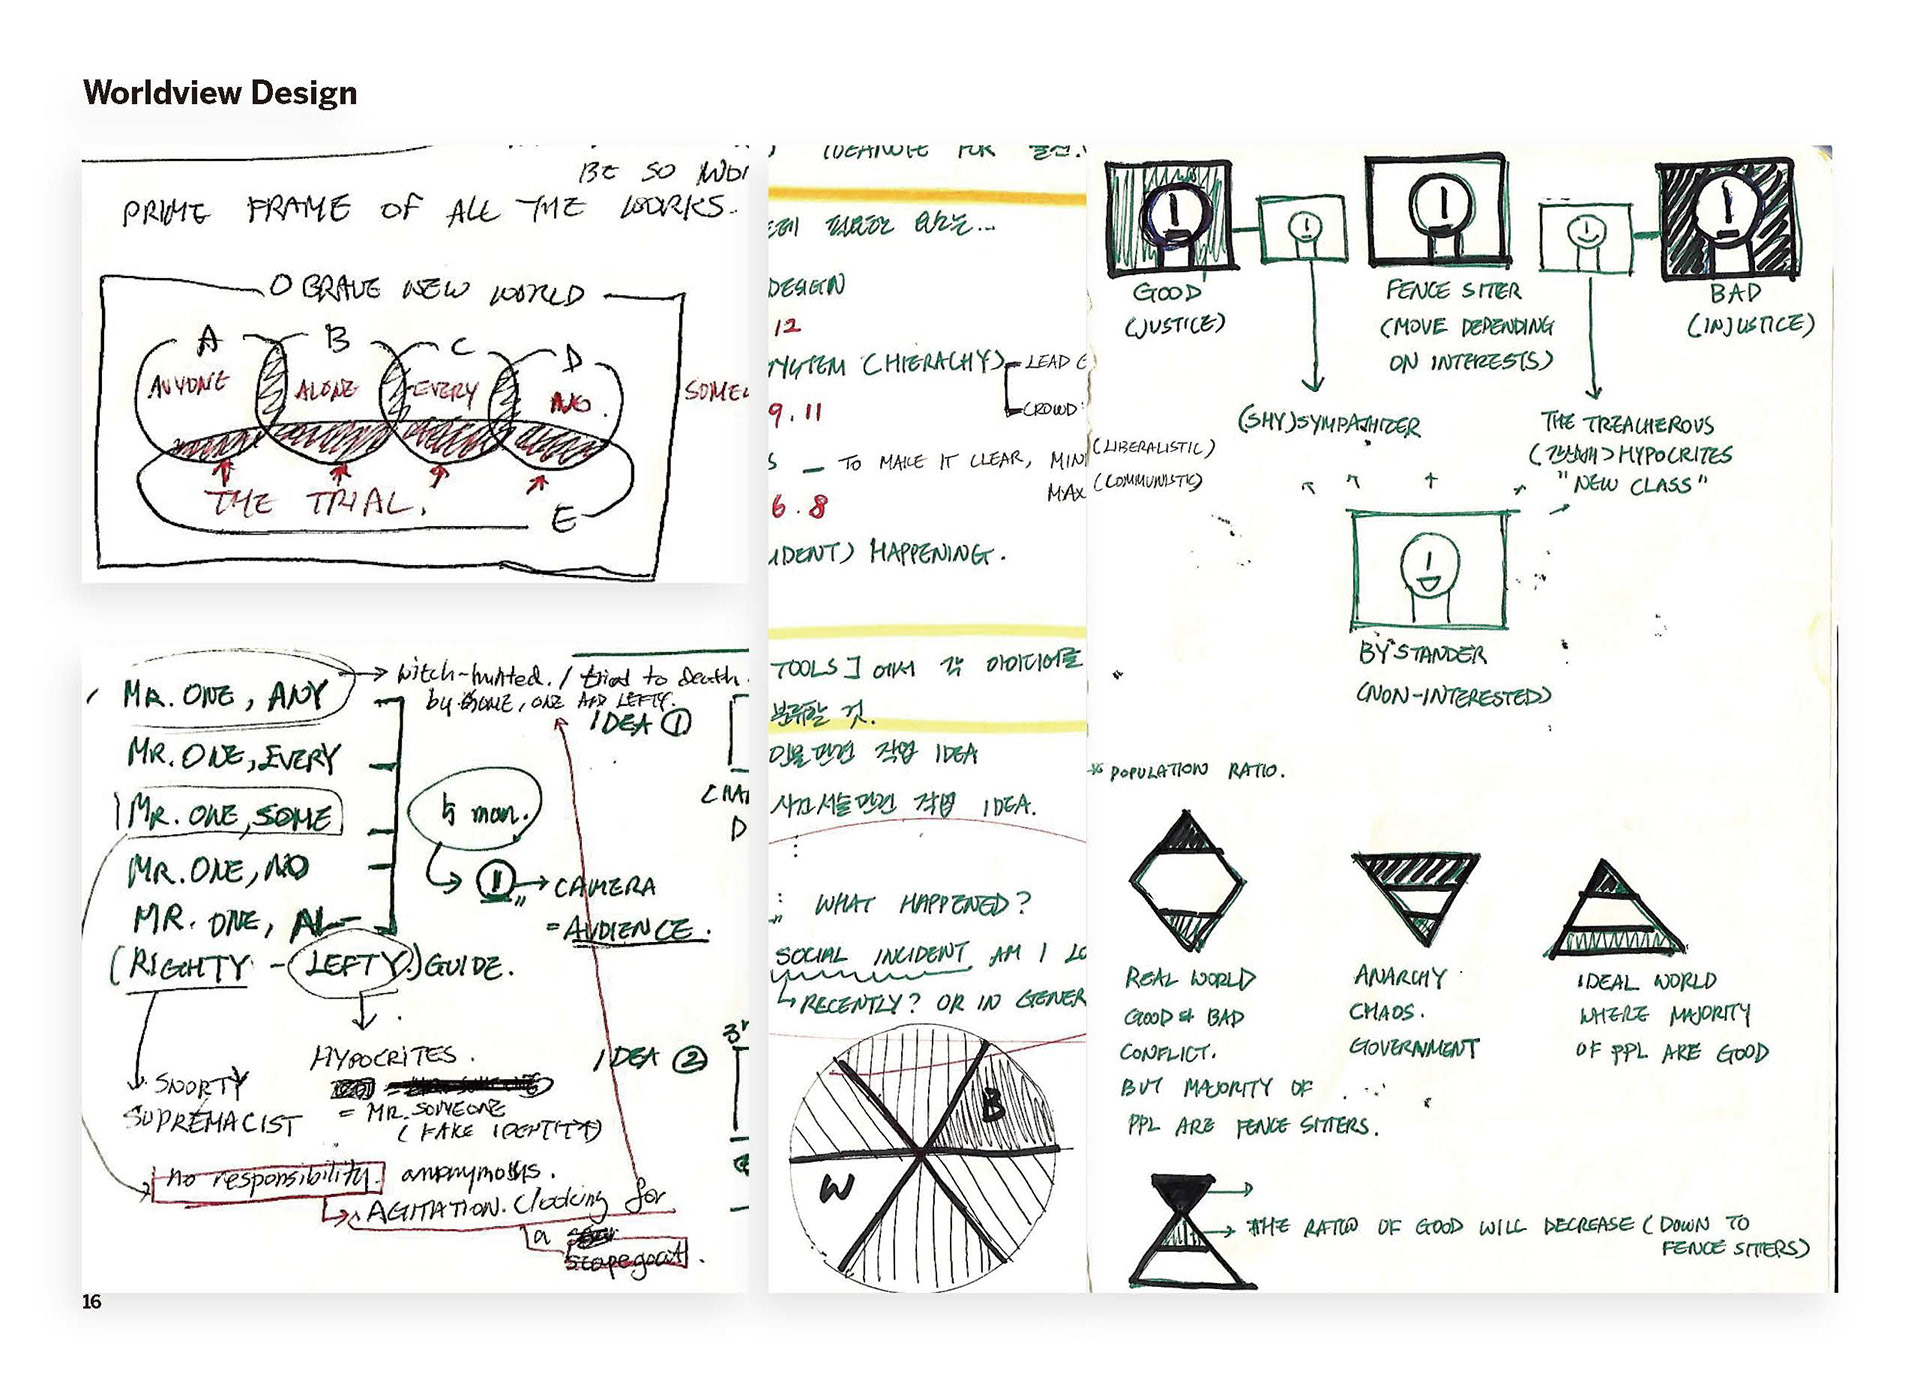 Worldview Design
BE SO
PRIME FRAME OF ALL THE WORKS.
O BRAVE NEW WORLD
A B C D
ANYONE ALONE EVERY NO.
THE TRIAL.
E
MR. ONE, ANY
witch-hunted. / tried to death.
by SOME, ONE AND LEFTY.
IDEA ①
MR. ONE, EVERY
MR. ONE, SOME
MR. ONE, NO
MR. ONE, AL
(RIGHTY - LEFTY) GUIDE.
man.
CAMERA
= AUDIENCE.
HYPOCRITES.
= MR. SOMEONE
(FAKE IDENTITY)
SNORTY
SUPREMACIST
IDEA ②
no responsibility. anonymous.
AGITATION. (looking for
a
scapegoat.
FOR
필요한
DESIGN
12
SYSTEM (HIERACHY)
LEAD
CROWD
9.11
TO MAKE IT CLEAR, MIN
MAX
6.8
HAPPENING.
TOOLS] 에서 각 아이디어를
분류할 것.
인물관련 작업 IDEA
작업 IDEA.
WHAT HAPPENED?
SOCIAL INCIDENT AM I
RECENTLY? OR IN GENER
B
W
GOOD
(JUSTICE)
FENCE SITER
(MOVE DEPENDING
ON INTERESTS)
BAD
(INJUSTICE)
(SHY) SYMPATHIZER
THE TREACHEROUS
(간신배) HYPOCRITES
"NEW CLASS"
(LIBERALISTIC)
(COMMUNISTIC)
BYSTANDER
(NON-INTERESTED)
POPULATION RATIO.
REAL WORLD
GOOD & BAD
CONFLICT.
BUT MAJORITY OF
PPL ARE FENCE SITTERS.
ANARCHY
CHAOS.
GOVERNMENT
IDEAL WORLD
WHERE MAJORITY
OF PPL ARE GOOD
THE RATIO OF GOOD WILL DECREASE (DOWN TO
FENCE SITTERS)
16